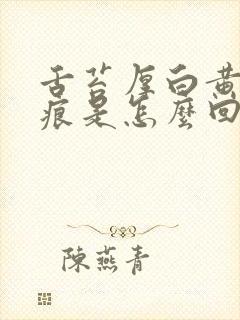 舌苔厚白黄
痕是怎麼回
陳燕青